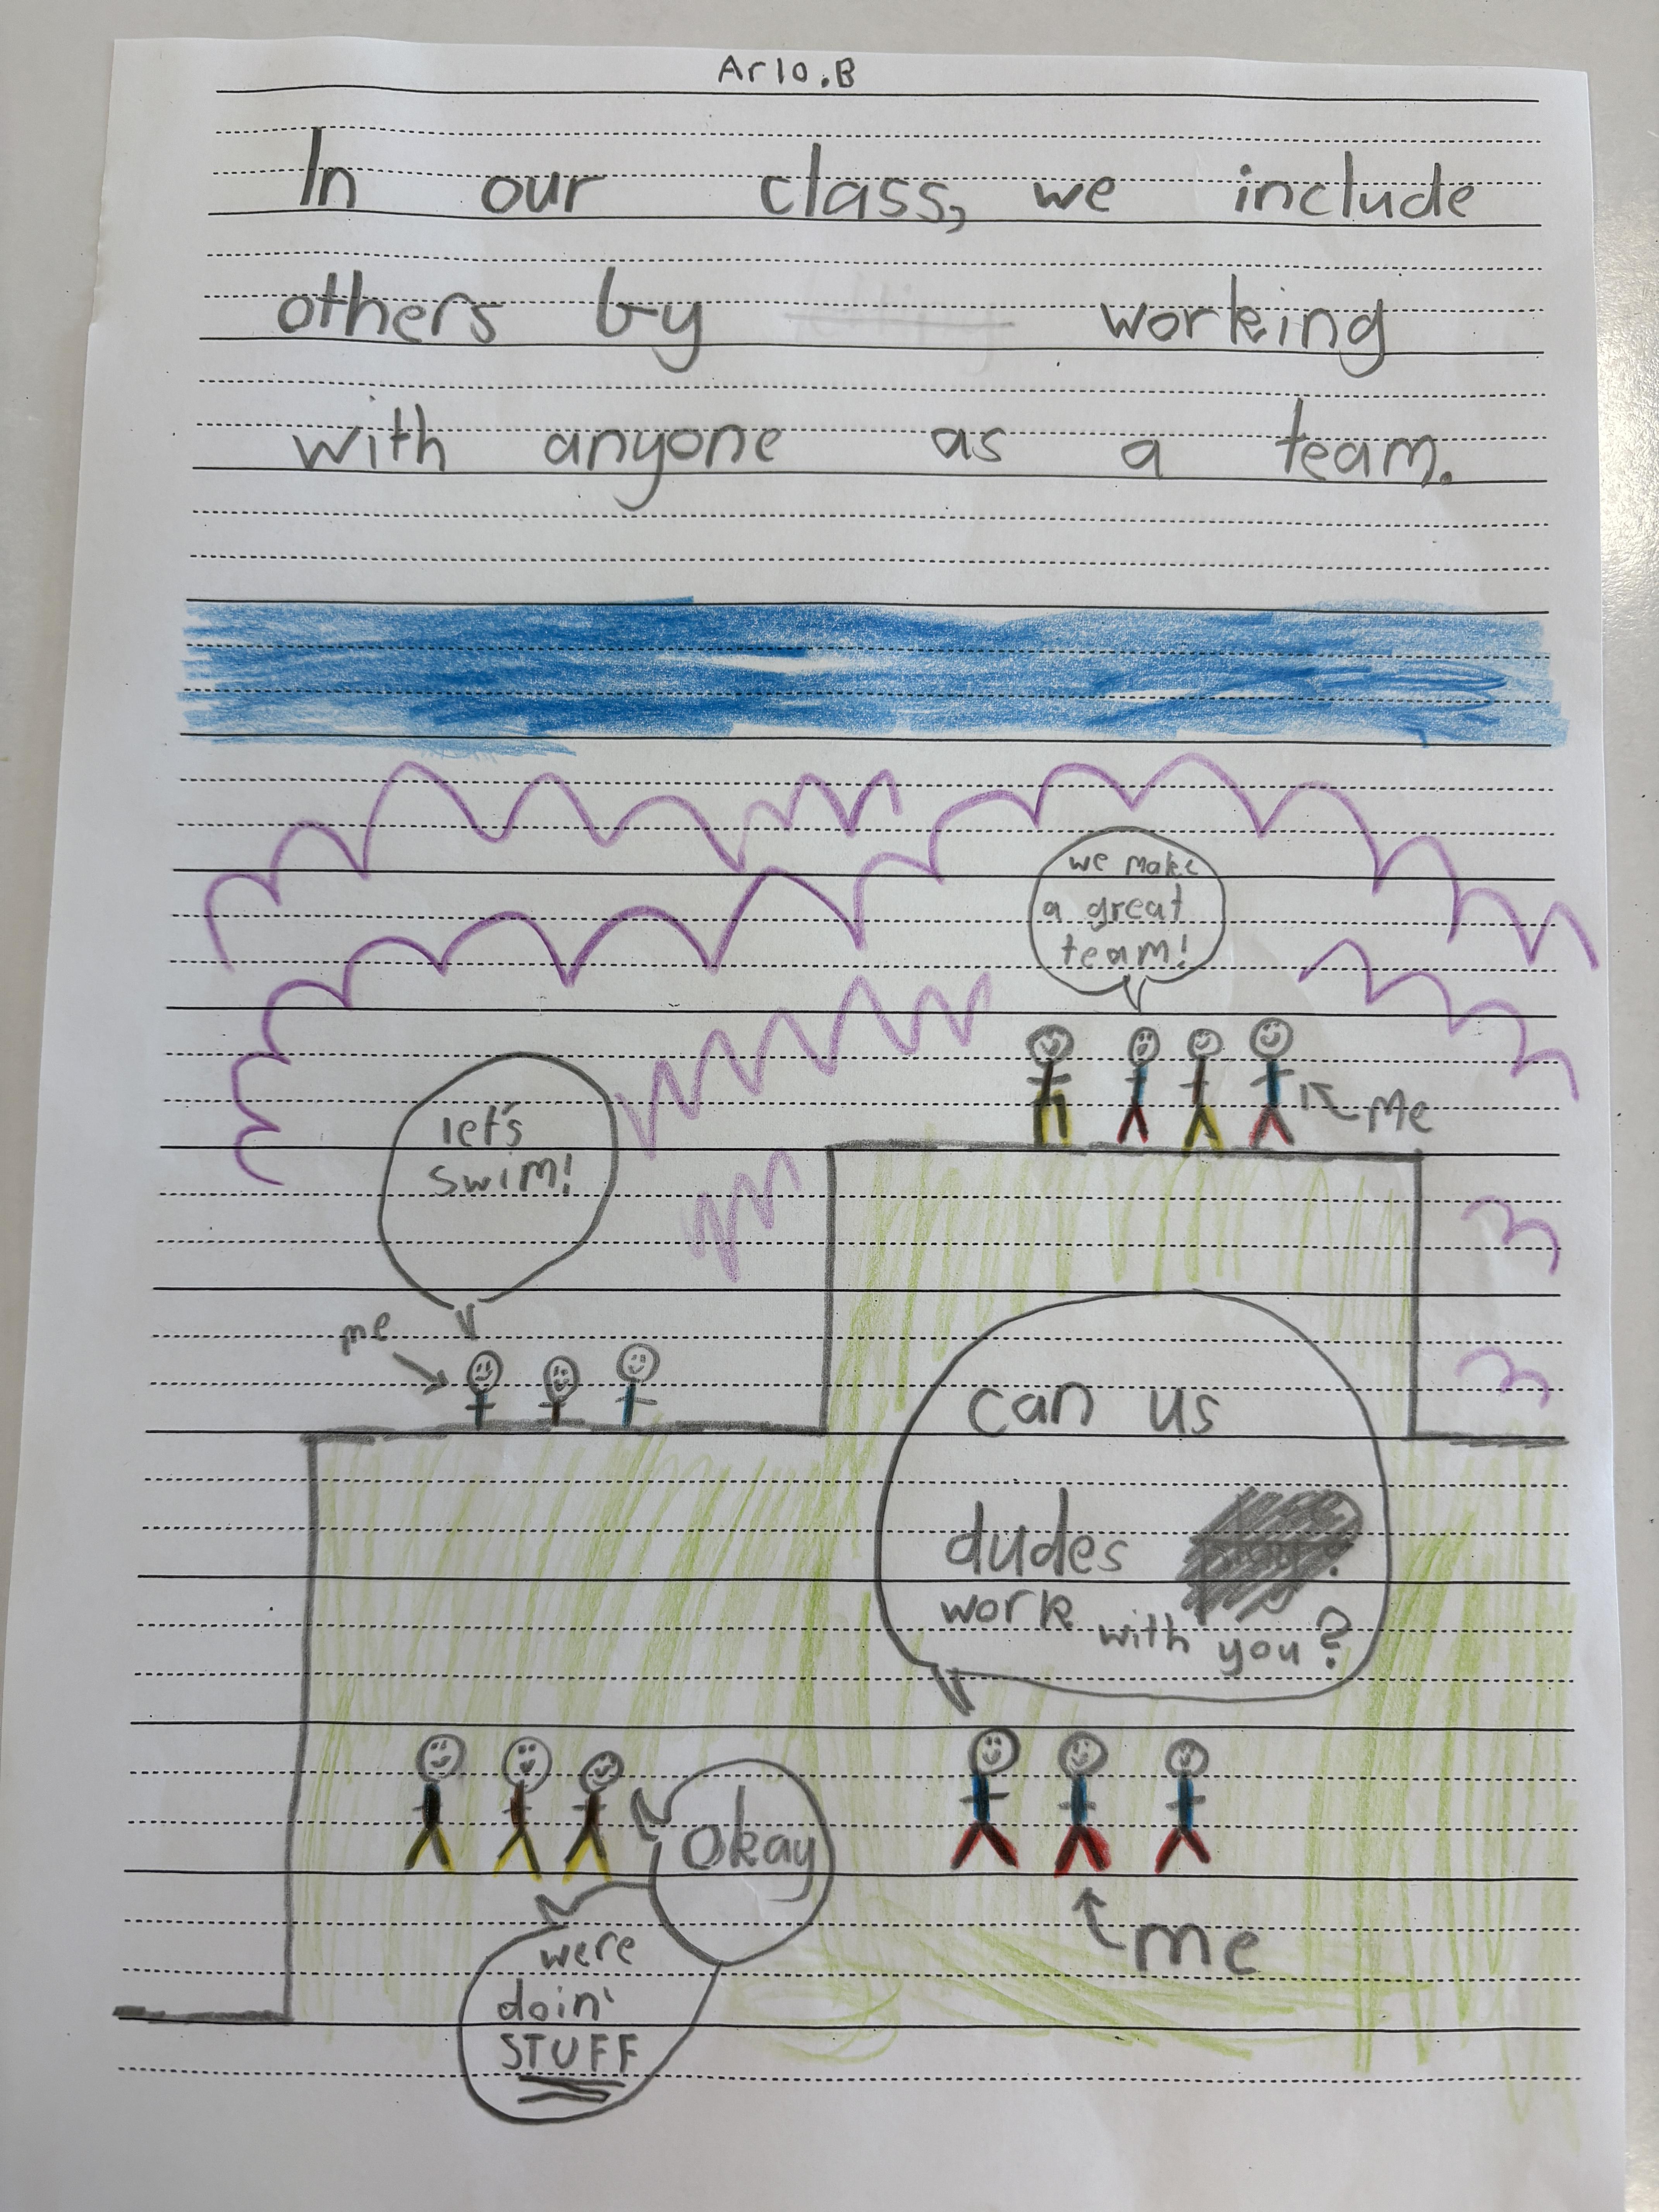 Arlo.B
In our class, we include
others by working
with anyone as a team.
we make
a great
team!
me
let's
swim!
me
can us
dudes
work with you?
okay
were
doin'
STUFF
me